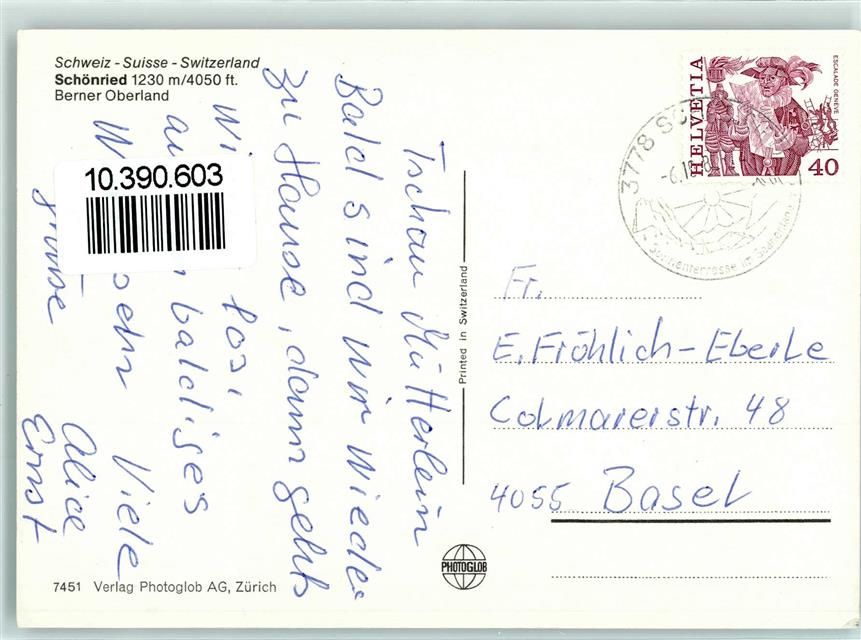 Schweiz - Suisse - Switzerland
Schönried 1230 m/4050 ft.
Berner Oberland
10.390.603
Tschau Mütterlein
Bald sind wir wieder
zu Hause, dann gehts
wi losi
au baldiges
W sehn Viele
grüsse
Alice
Ernst
7451 Verlag Photoglob AG, Zürich
Printed in Switzerland
PHOTOGLOB
HELVETIA
ESCALADE GENÈVE
40
3778
Sonnenterrasse im
Fr.
E. Fröhlich-Eberle
Colmarerstr. 48
4055 Basel